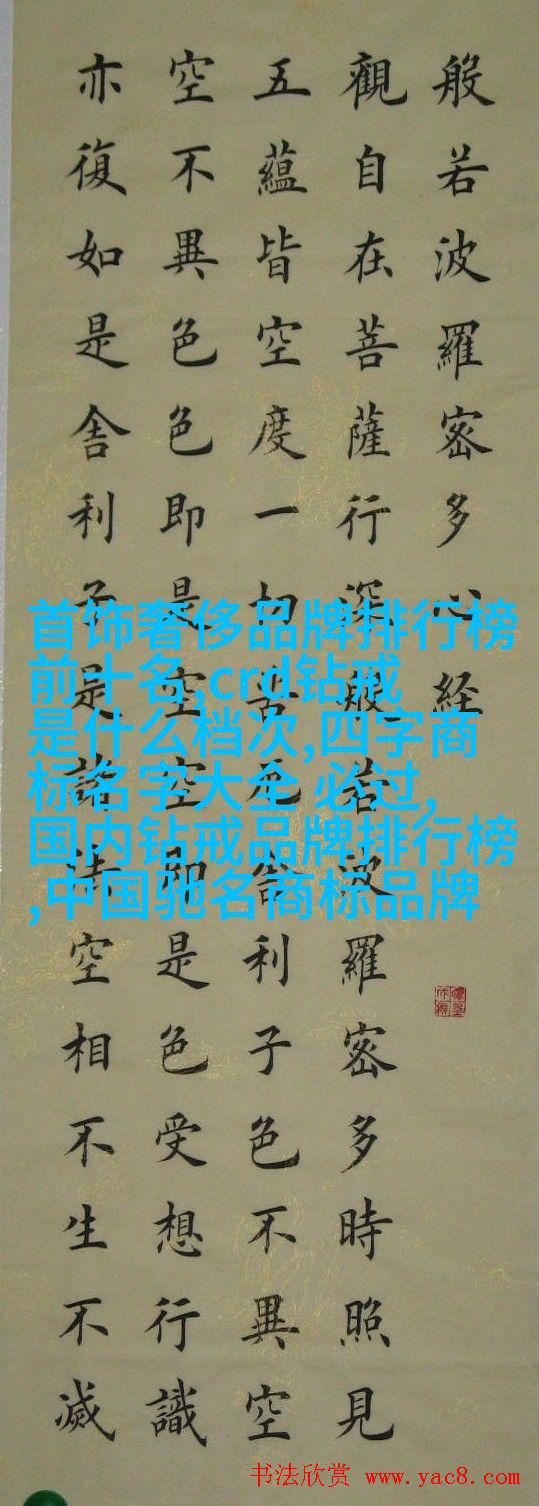 般若波羅密多心経
觀自在菩薩行深般若波羅密多時照見
五蘊皆空度一切苦厄舍利子色不異空
空不異色色即是空空即是色受想行識
亦復如是舍利子是諸法空相不生不滅
首饰奢侈品牌排行榜
前十名,crd钻戒
是什么档次,四字商
标名字大全 必过,
国内钻戒品牌排行榜
,中国驰名商标品牌
书法欣赏 www.yac8.com